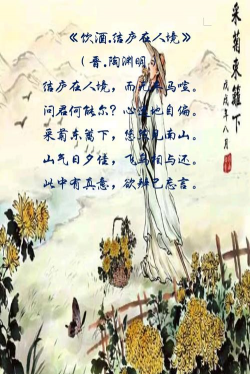 《饮酒.结庐在人境》
(晋.陶渊明)
结庐在人境，而无车马喧。
问君何能尔？心远地自偏。
采菊东篱下，悠然见南山。
山气日夕佳，飞鸟相与还。
此中有真意，欲辨已忘言。
采菊东篱下
戊戌年八月